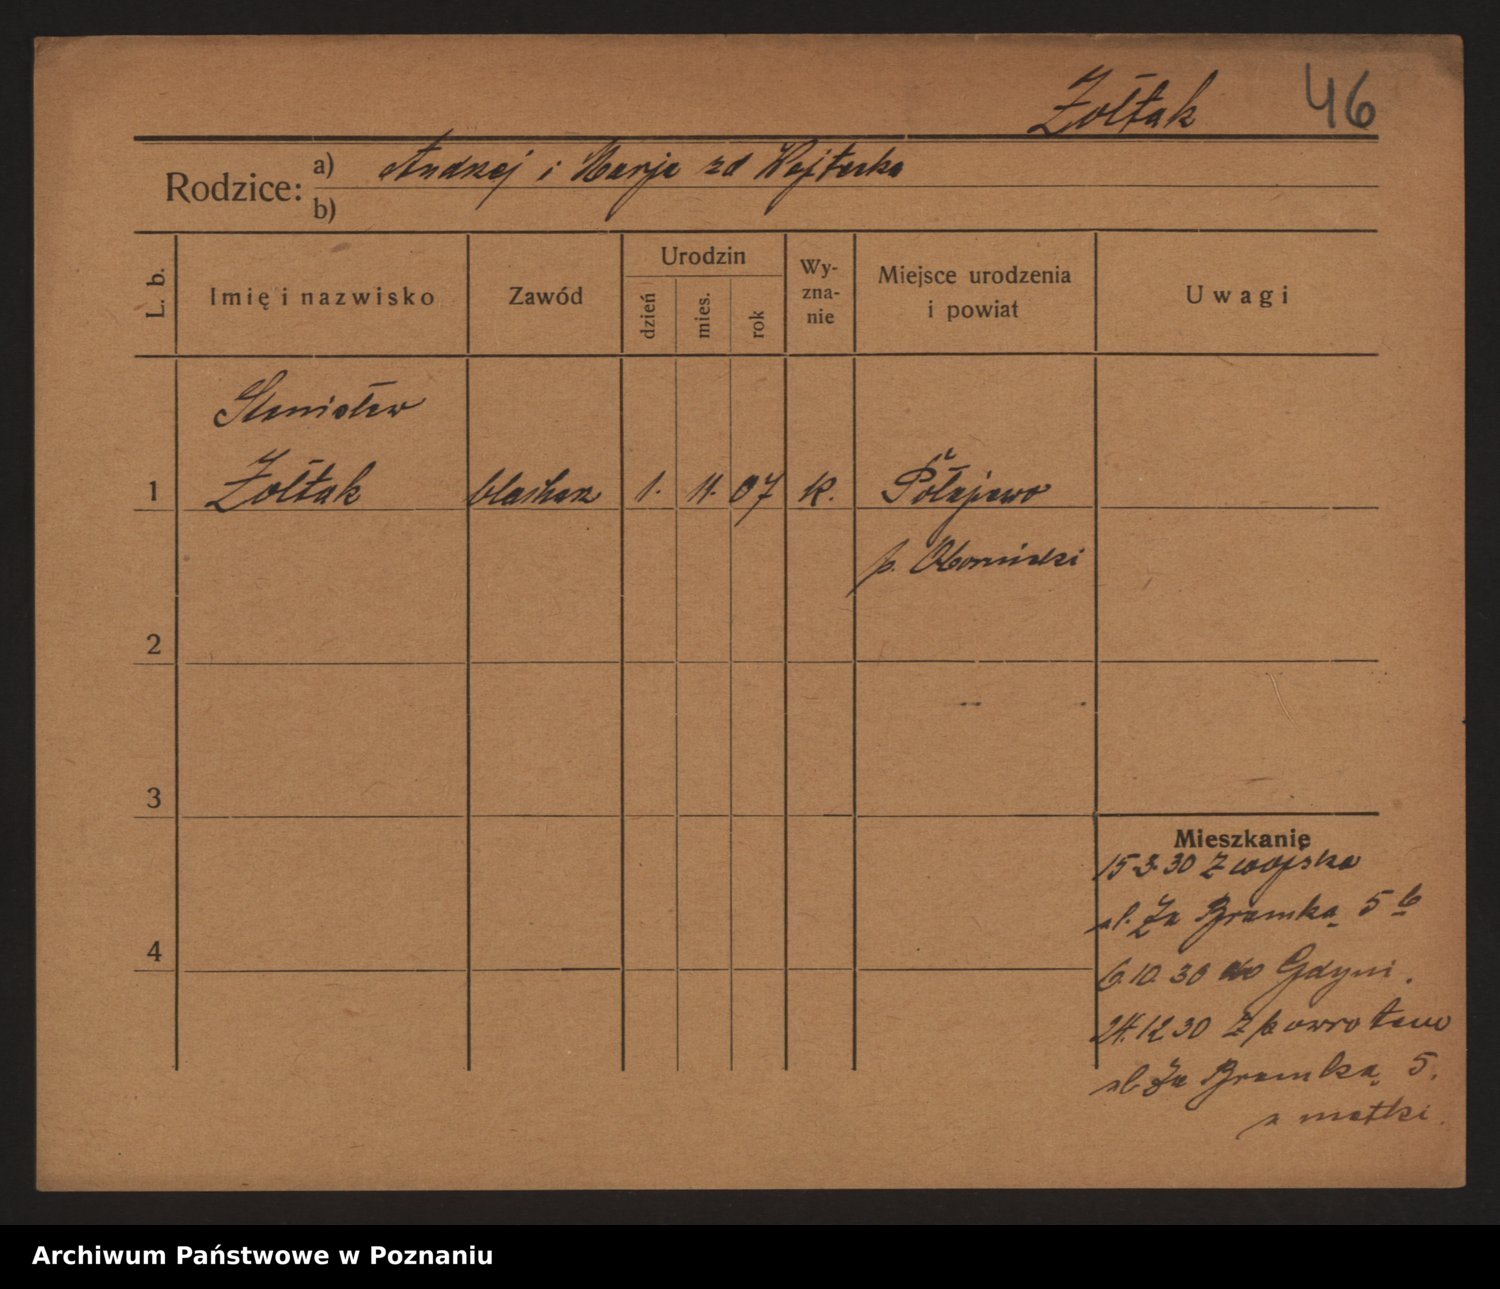 Żołtak 46
Rodzice: a) Andrzej i Marja zd Wojtecka
b)
L. b. Imię i nazwisko Zawód Urodzin dzień mies. rok Wyznanie Miejsce urodzenia i powiat Uwagi
Stanisław
1 Żołtak blacharz 1. 11. 07 K. Połajewo
p. Obornicki
2
3
Mieszkanie
15 3. 30 Z wojska
ul. Za Bramką 5 b
4
6. 10. 30 do Gdyni.
24. 12 30 Z powrotem
ul Za Bramką 5.
u matki.
Archiwum Państwowe w Poznaniu